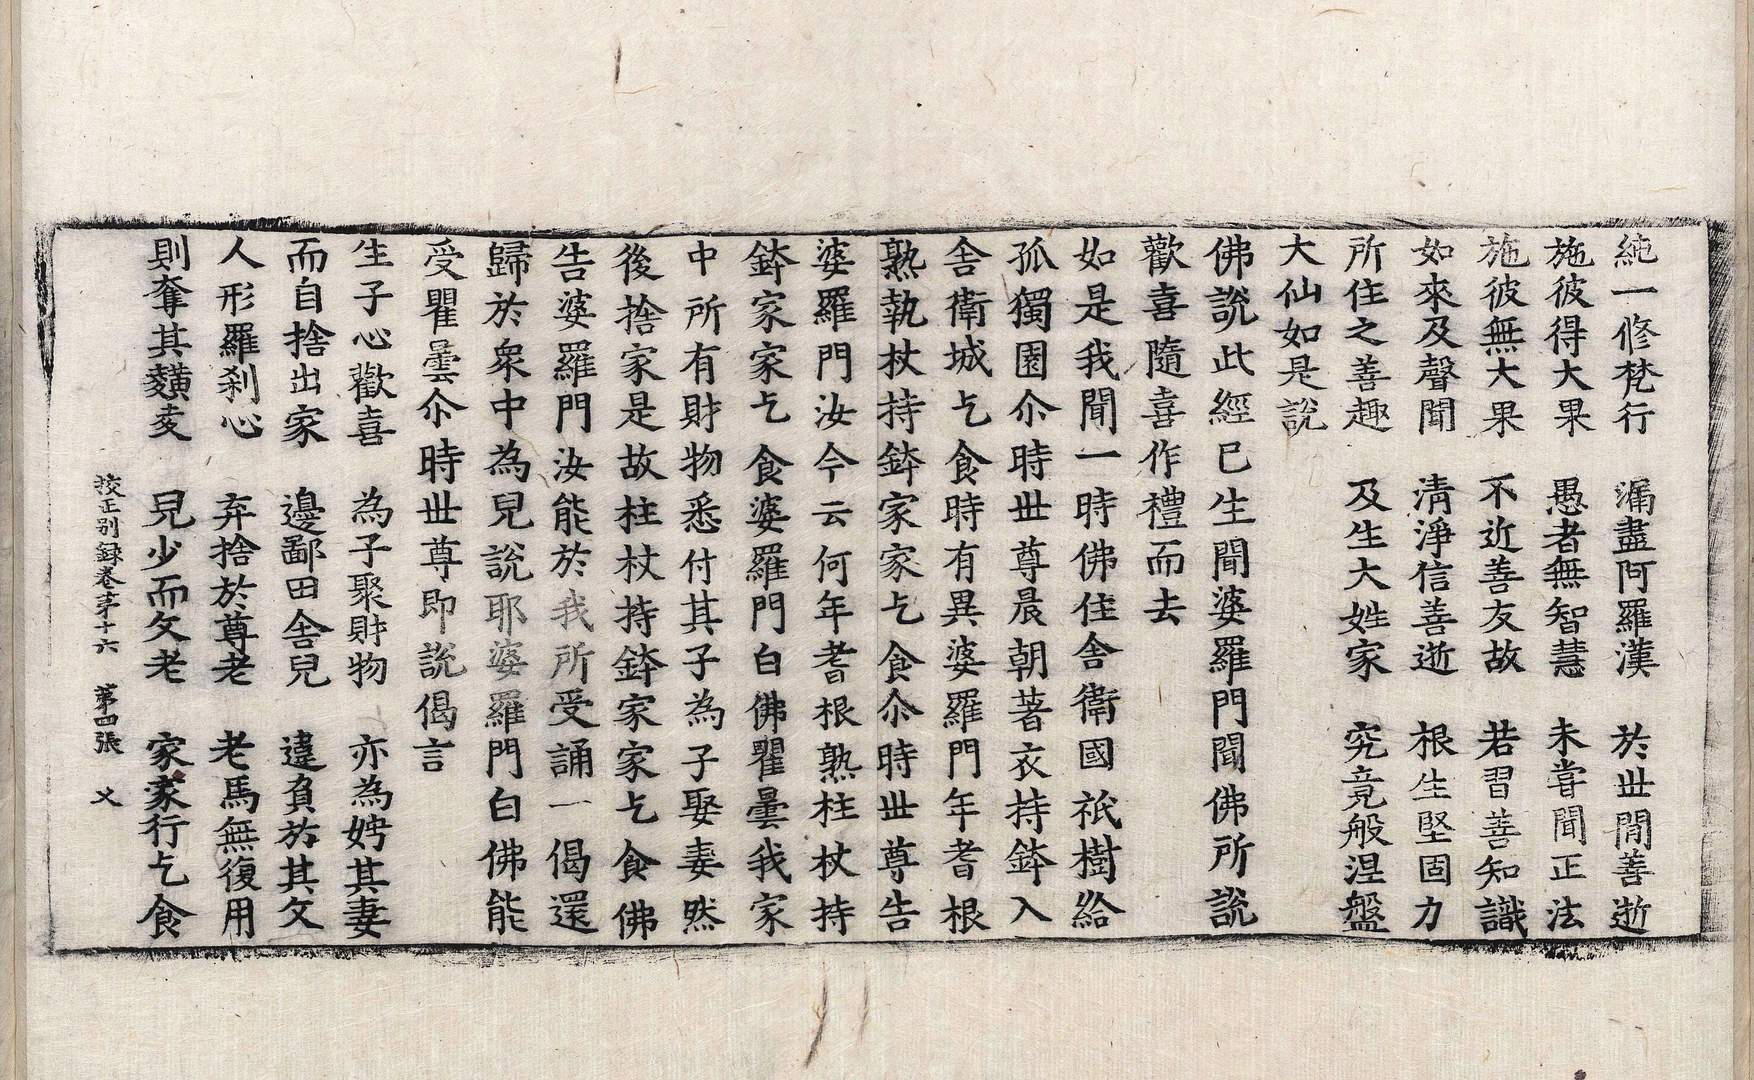 純一修梵行　漏盡阿羅漢　於世間善逝
施彼得大果　愚者無智慧　未甞聞正法
施彼無大果　不近善友故　若習善知識
如來及聲聞　清淨信善逝　根生堅固力
所住之善趣　及生大姓家　究竟般涅盤
大仙如是說
佛說此經已生聞婆羅門聞佛所說
歡喜隨喜作禮而去
如是我聞一時佛住舍衛國祇樹給
孤獨園尒時世尊晨朝著衣持鉢入
舍衛城乞食時有異婆羅門年耆根
熟執杖持鉢家家乞食尒時世尊告
婆羅門汝今云何年耆根熟柱杖持
鉢家家乞食婆羅門白佛瞿曇我家
中所有財物悉付其子為子娶妻然
後捨家是故柱杖持鉢家家乞食佛
告婆羅門汝能於我所受誦一偈還
歸於衆中為兒說耶婆羅門白佛能
受瞿曇尒時世尊即說偈言
生子心歡喜　為子聚財物　亦為娉其妻
而自捨出家　邊鄙田舍兒　違負於其父
人形羅刹心　弃捨於尊老　老馬無復用
則奪其䵃麦　兒少而父老　家家行乞食
挍正別録卷苐十六　第四張　㐅